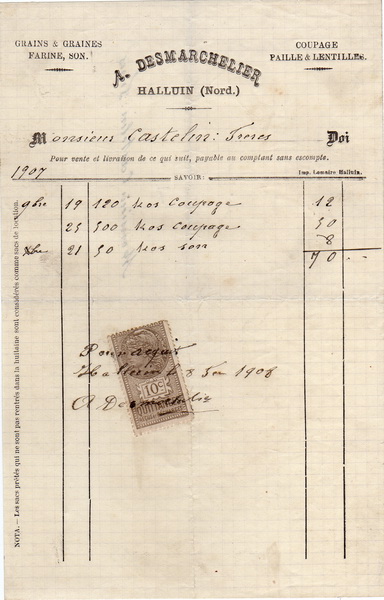 GRAINS & GRAINES
FARINE, SON.
COUPAGE
PAILLE & LENTILLES.
A. DESMARCHELIER
HALLUIN (Nord.)
Monsieur Castelin: Freres Doi
Pour vente et livraison de ce qui suit, payable au comptant sans escompte.
1907
SAVOIR:
Imp. Lemaire Halluin.
9bre 19 120 kos Coupage 12
25 500 kos Coupage 50
Xbre 21 50 kos son 8
70 "
Pour acquit
Halluin le 8 1908
A Desmarchelier
10c
QUITTANCES
NOTA. — Les sacs prêtés qui ne sont pas rentrés dans la huitaine sont considérés comme sacs de location.